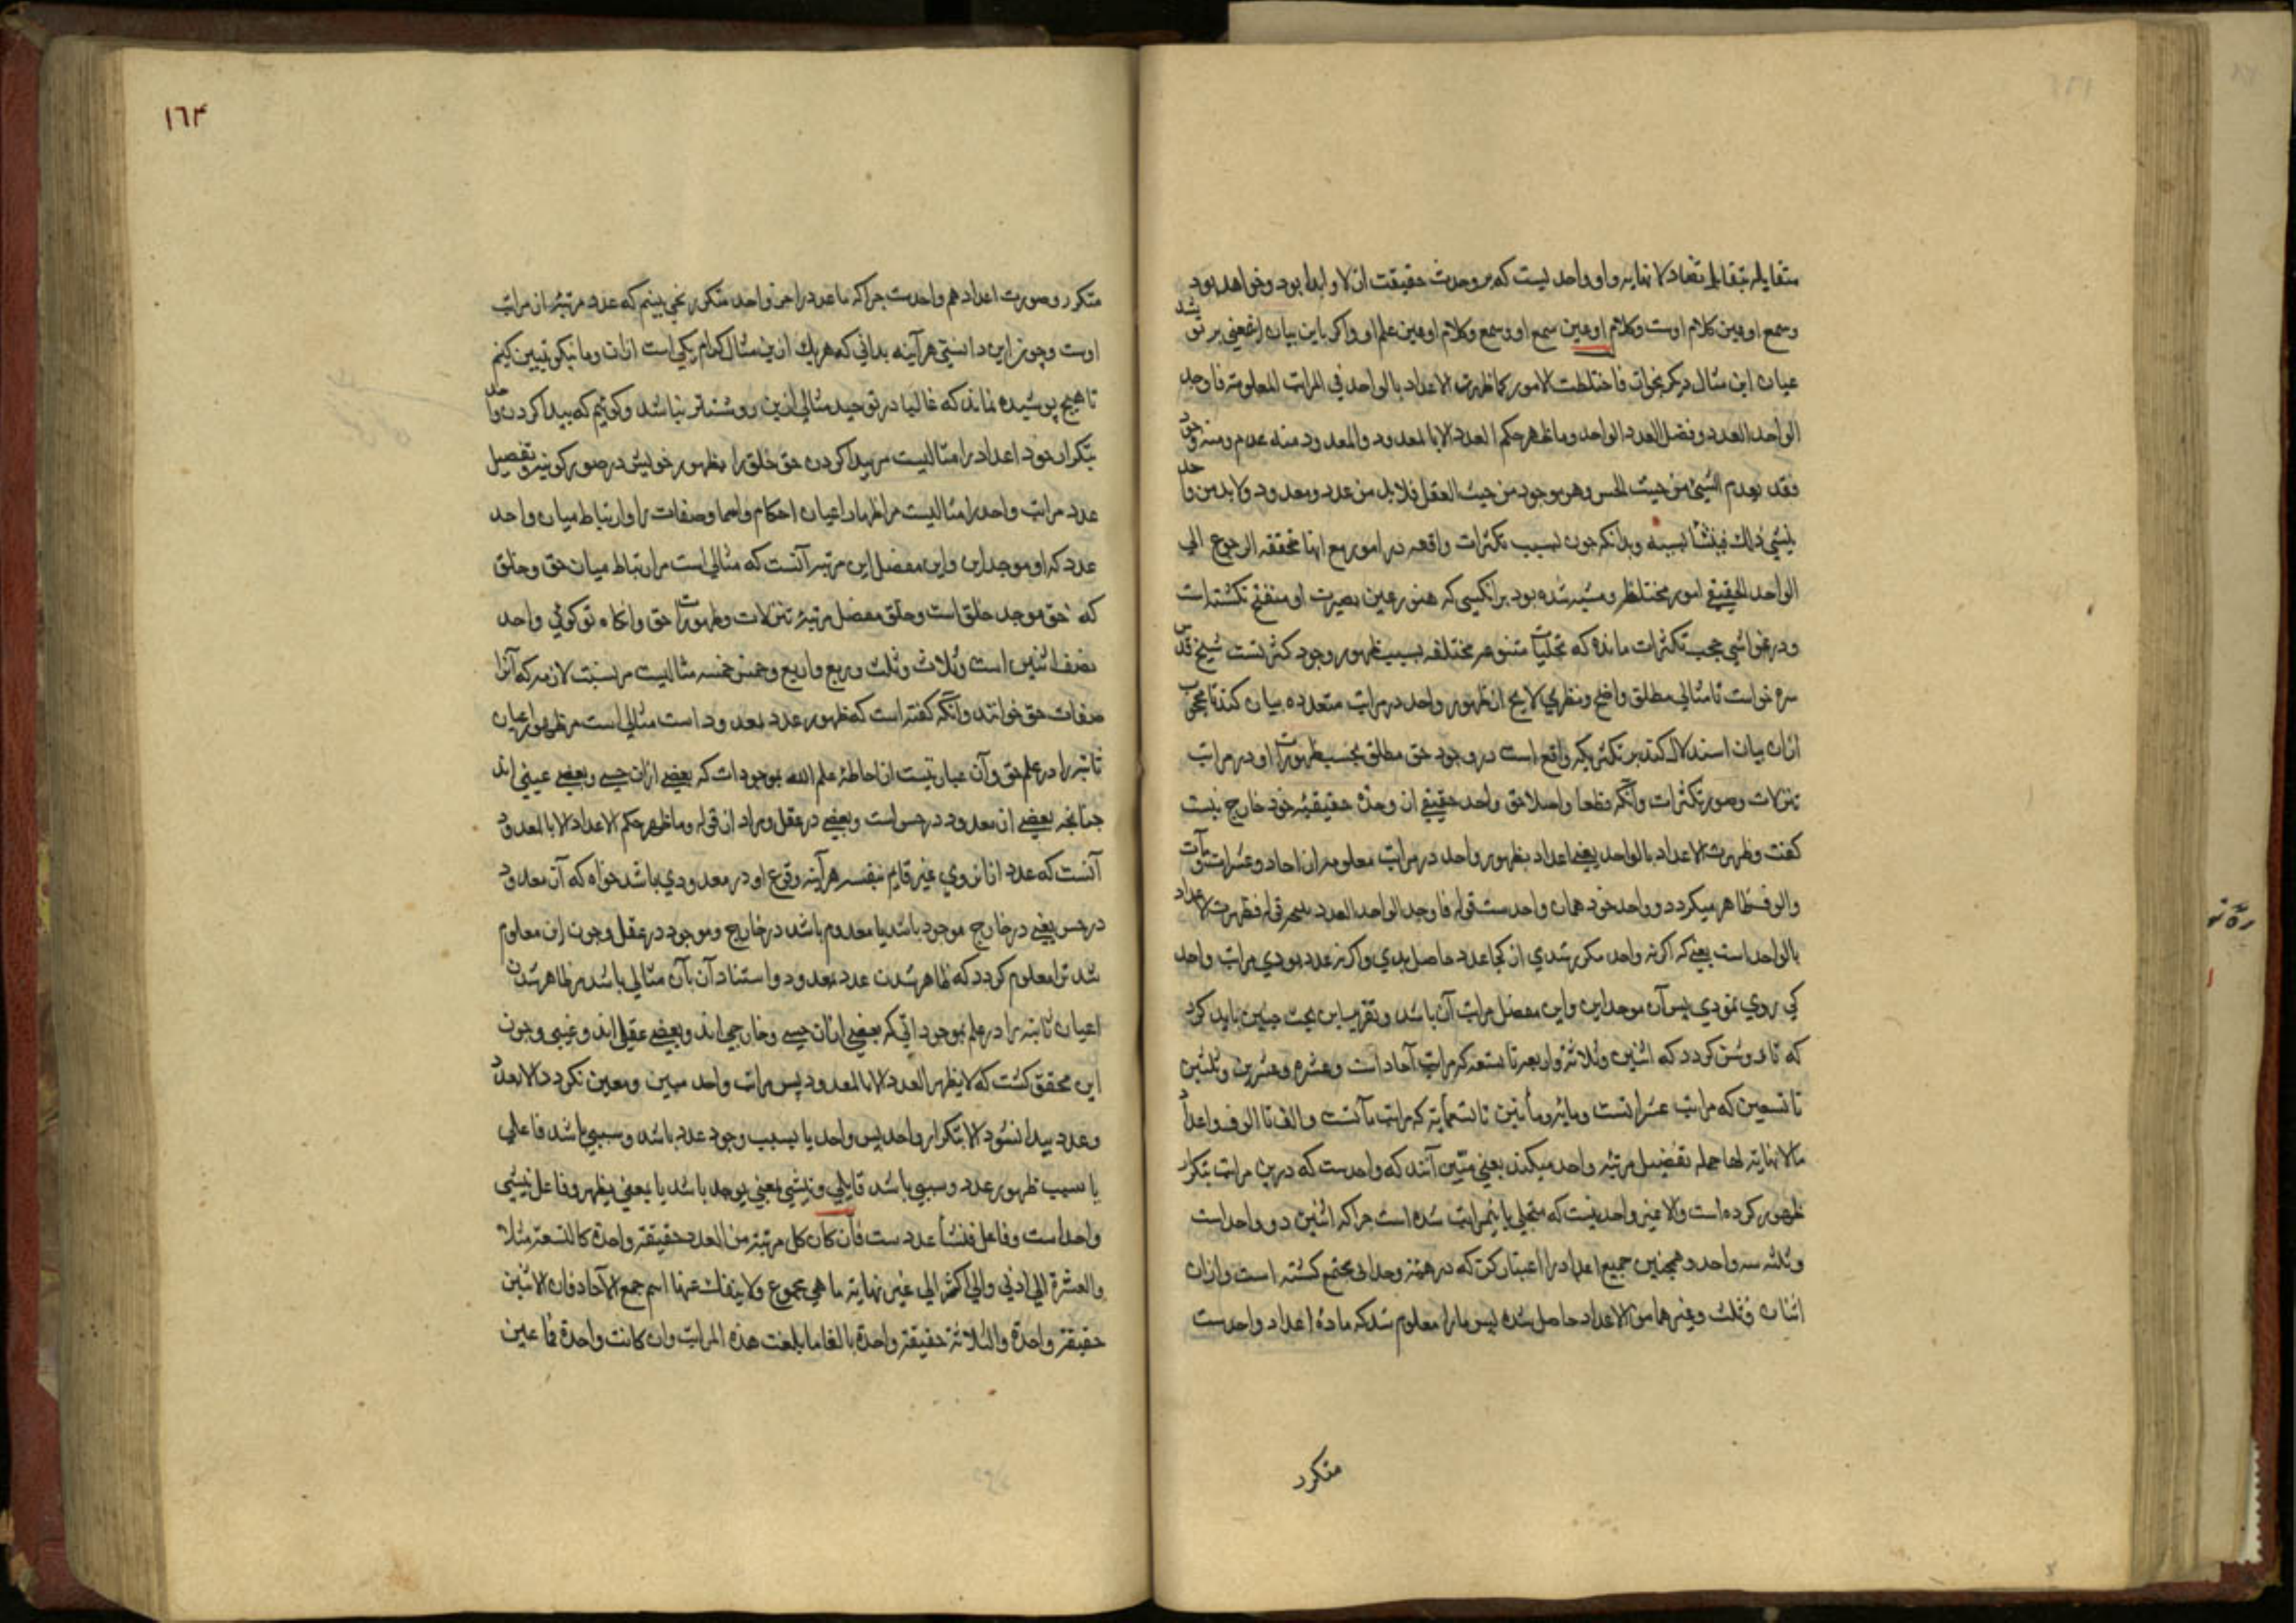 متقابله بتقابل تضاد لا نهایه و او واحدیست که بر وحدت حقیقت ازلا و ابدا بود و خواهد بود
وسمع او عین کلام اوست وکلام او عین سمع او وسمع وکلام او عین علم او واکر باین بیان این معنی بر تو نشد
عیان این مثال دیکر بخوان فاختلطت الامور کما ظهرت الاعداد بالواحد في المراتب المعلومة فاوجد
الواحد العدد وفصل العدد الواحد وما ظهر حکم العدد الا بالمعدود والمعدود منه عدم ومنه وجود
فقد یعدم الشيء من حیث الحس وهو موجود من حیث العقل فلا بد من عدد ومعدود ولا بد من واحد
ینشيء ذلك فینشأ بسببه وبدانکه چون بسبب تکثرات واقعه در امور مع انها محققه الرجوع الی
الواحد الحقیقي امور مختلط ومشتبه شده بود بر انکسی که هنوز عین بصیرت او منفتح نکشته است
ودر غواشی حجب تکثرات مانده که تجلیات متنوعه مختلفه بسبب ظهور وجود کثرتست شیخ قدس
سره خواست تا مثالی مطلق واضح ونظری لایح از ظهور واحد در مراتب متعدده بیان کند تا محجوب
ازان بیان استدلال کند بر تکثریکه واقع است در وجود حق مطلق بحسب ظهورات او در مراتب
تنزلات وصور تکثرات وآنکه قطعا واصلا حق واحد حقیقی از وحدة حقیقیه خود خارج نیست
کفت وظهرت الاعداد بالواحد یعنی اعداد بظهور واحد در مراتب معلومه از احاد وعشرات ومآت
والوف ظاهر میکردد وواحد خود همان واحدست قوله فاوجد الواحد العدد نتیجه قوله فظهرت الاعداد
بالواحد است یعنی که اکر نه واحد مکرر شدی از کجا عدد حاصل بدی واکر نه عدد بودی مراتب واحد
کی روی نمودی پس آن موجد این واین مفصل مراتب آن باشد وتقریب این بحث چنین باید کرد
که تا روشن کردد که اثنین وثلاثة واربعه تا تسعه که مراتب آحاد است وعشره وعشرین وثلثین
تا تسعین که مراتب عشراتست ومایه ومأتین تا تسعمایه که مراتب مآتست والف تا الوف واعداد
ما لا نهایة لها جمله تفصیل مرتبه واحد میکند یعنی مبین آنند که واحدست که درین مراتب بتکرار
ظهور کرده است والا غیر واحد نیست که متجلی باینمراتب شده است چرا که اثنین دو واحداست
وثلثه سه واحد وهمچنین جمیع اعداد را اعتبار کن که در همه وحداتی مجتمع کشته است وازان
اثنان وثلث وغیرهما من الاعداد حاصل شده پس ما را معلوم شد که ماده اعداد واحدست
متکرر
١٦٤
متکرر وصورت اعداد هم واحدست چرا که ما عدد را جز واحد متکرر نمی بینیم که عدد مرتبه از مراتب
اوست وچون این دانستی هرآینه بدانی که هریك ازین مثال کدام یکی است ازان وما نیکو تبیین کنیم
تا هیچ پوشیده نماند که غالبا در توحید مثالی ازین روشنتر نباشد وکوییم که پیدا کردن واحد
بتکرار خود اعداد را مثالیست مر پیدا کردن حق خلق را بظهور خویش در صور کونیه وتفصیل
عدد مراتب واحد را مثالیست مر اظهار اعیان احکام واسما وصفات را وارتباط میان واحد
عدد که او موجد این واین مفصل این مرتبه آنست که مثالی است مر ارتباط میان حق وخلق
که حق موجد خلق است وخلق مفصل مرتبه تنزلات وظهورات حق وانکاه تو کوئی واحد
نصف اثنین است وثلاث وثلث وربع واربع وخمس خمسه مثالیست مر نسبت لازمه که آنرا
صفات حق خوانند وآنکه کفته است که ظهور عدد بمعدود است مثالی است مر ظهور اعیان
ثابته را در علم حق وآن عبارتیست از احاطهٔ علم الله بموجودات که بعضی ازان حسی وبعضی غیبی اند
چنانچه بعضی از معدود در حس است وبعضی در عقل ومراد از قوله وما ظهر حکم الاعداد الا بالمعدود
آنست که عدد ازانروی غیر قایم بنفسه هرآینه وقوع او در معدودی باشد خواه که آن معدود
در حس یعنی در خارج موجود باشد یا معدوم باشد در خارج وموجود در عقل وچون این معلوم
شد ترا معلوم کردد که ظاهر شدن عدد بمعدود واستناد آن بآن مثالی باشد مر ظاهر شدن
اعیان ثابته را در علم بموجوداتی که بعضی ازان حسی وخارجی اند وبعضی عقلی اند وغیبی وچون
این محقق کشت که لا یظهر العدد الا بالمعدود پس مراتب واحد مبین ومعین نکردد الا بعدد
وعدد پیدا نشود الا بتکرار واحد پس واحد یا بسبب وجود عدد باشد وسببی باشد فاعلی
یا سبب ظهور عدد وسببی باشد قابلی وینشی بمعنی یوجد باشد یا بمعنی یظهر وفاعل ینشی
واحداست وفاعل فینشأ عددست فان کان کل مرتبة من العدد حقیقة واحدة کالتسعة مثلا
والعشرة الی ادنی والی اکثر الی غیر نهایة ما هي مجموع ولا ینفك عنها اسم جمع الآحاد فان الاثنین
حقیقة واحدة والثلاثة حقیقة واحدة بالغا ما بلغت هذه المراتب وان کانت واحدة فما عین